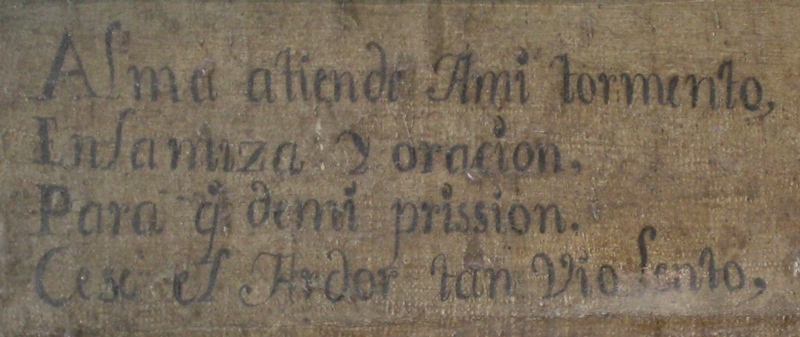 Alma atiende Ami tormento,
En la miza Y oracion.
Para q̃. demi prission.
Cese el Ardor tan Violento,